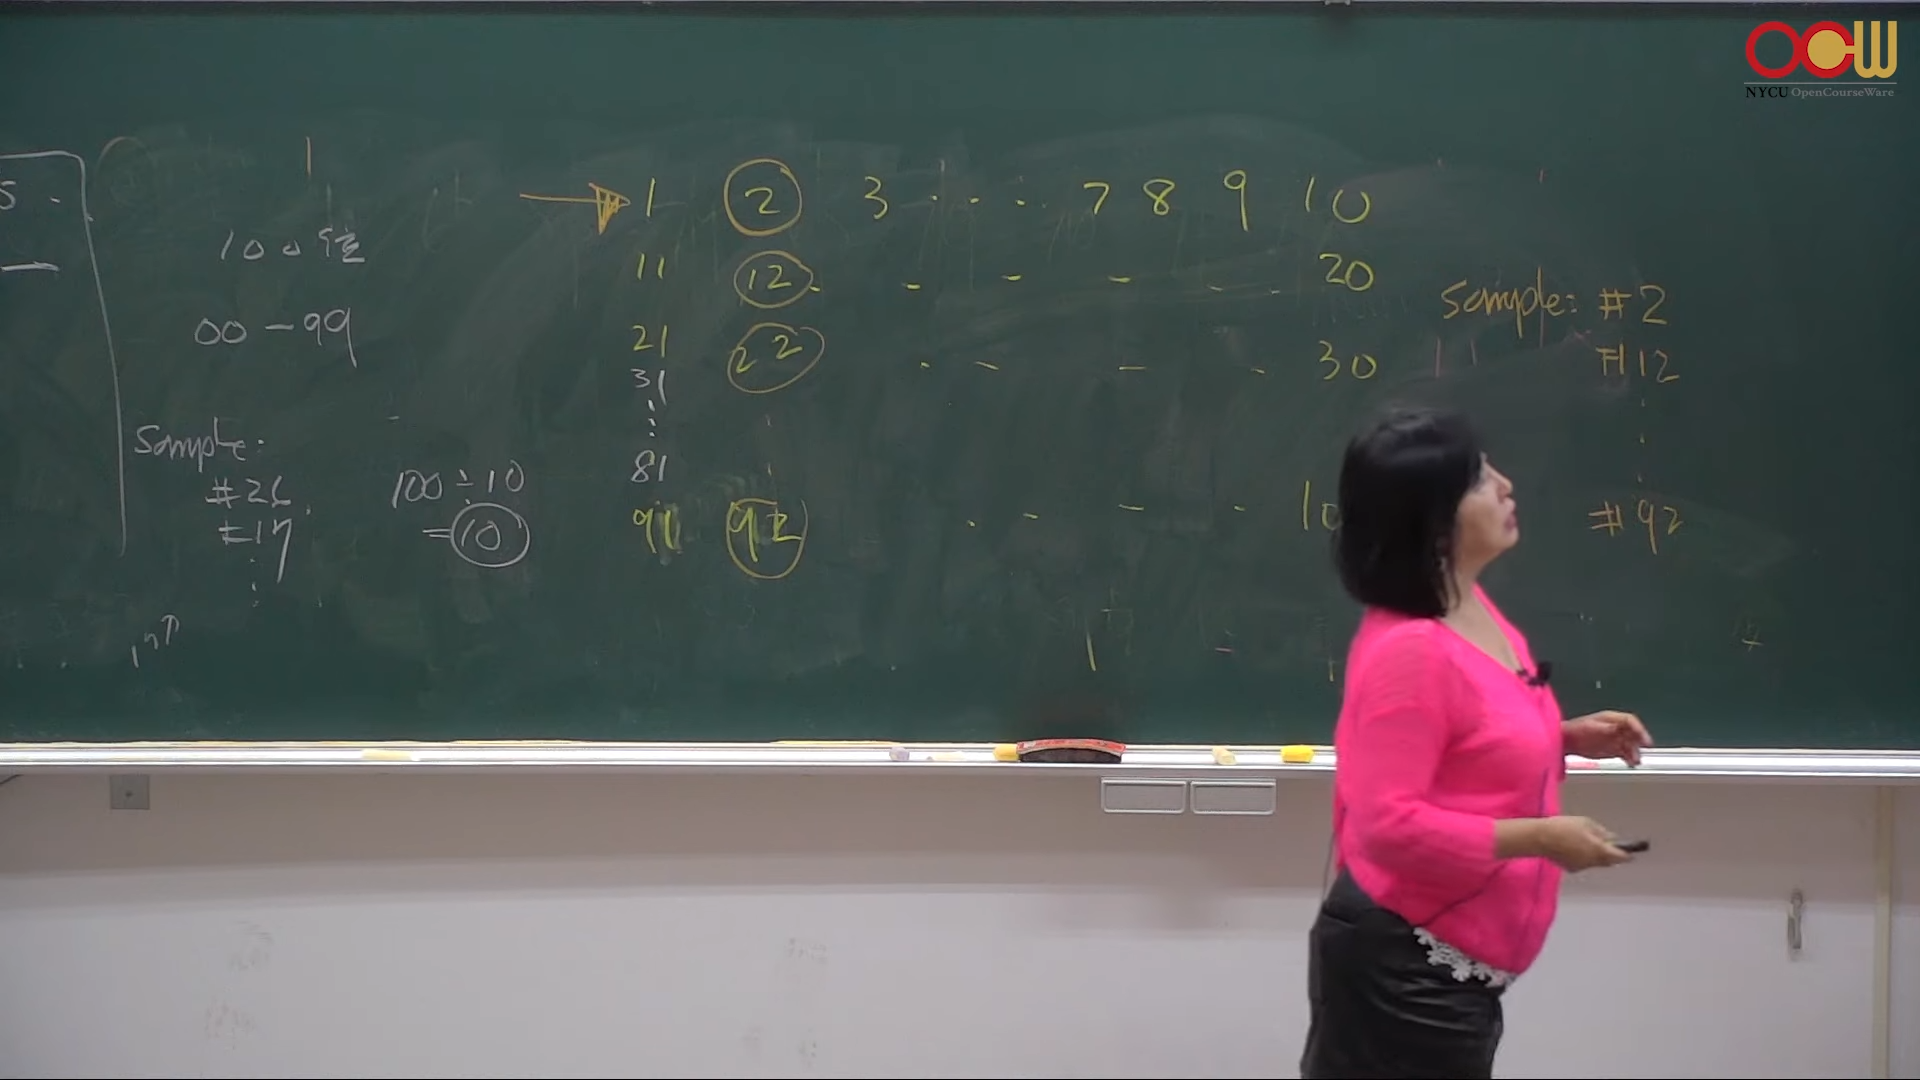 OCW
NYCU OpenCourseWare
5.
100位
00 - 99
Sample:
#26
#17
100 ÷ 10
= 10
1 2 3 . . . . 7 8 9 10
11 12 . - - - - - 20
21 22 . - - - 30
31
81
91 92 . - - - 10
Sample: #2
#12
#92